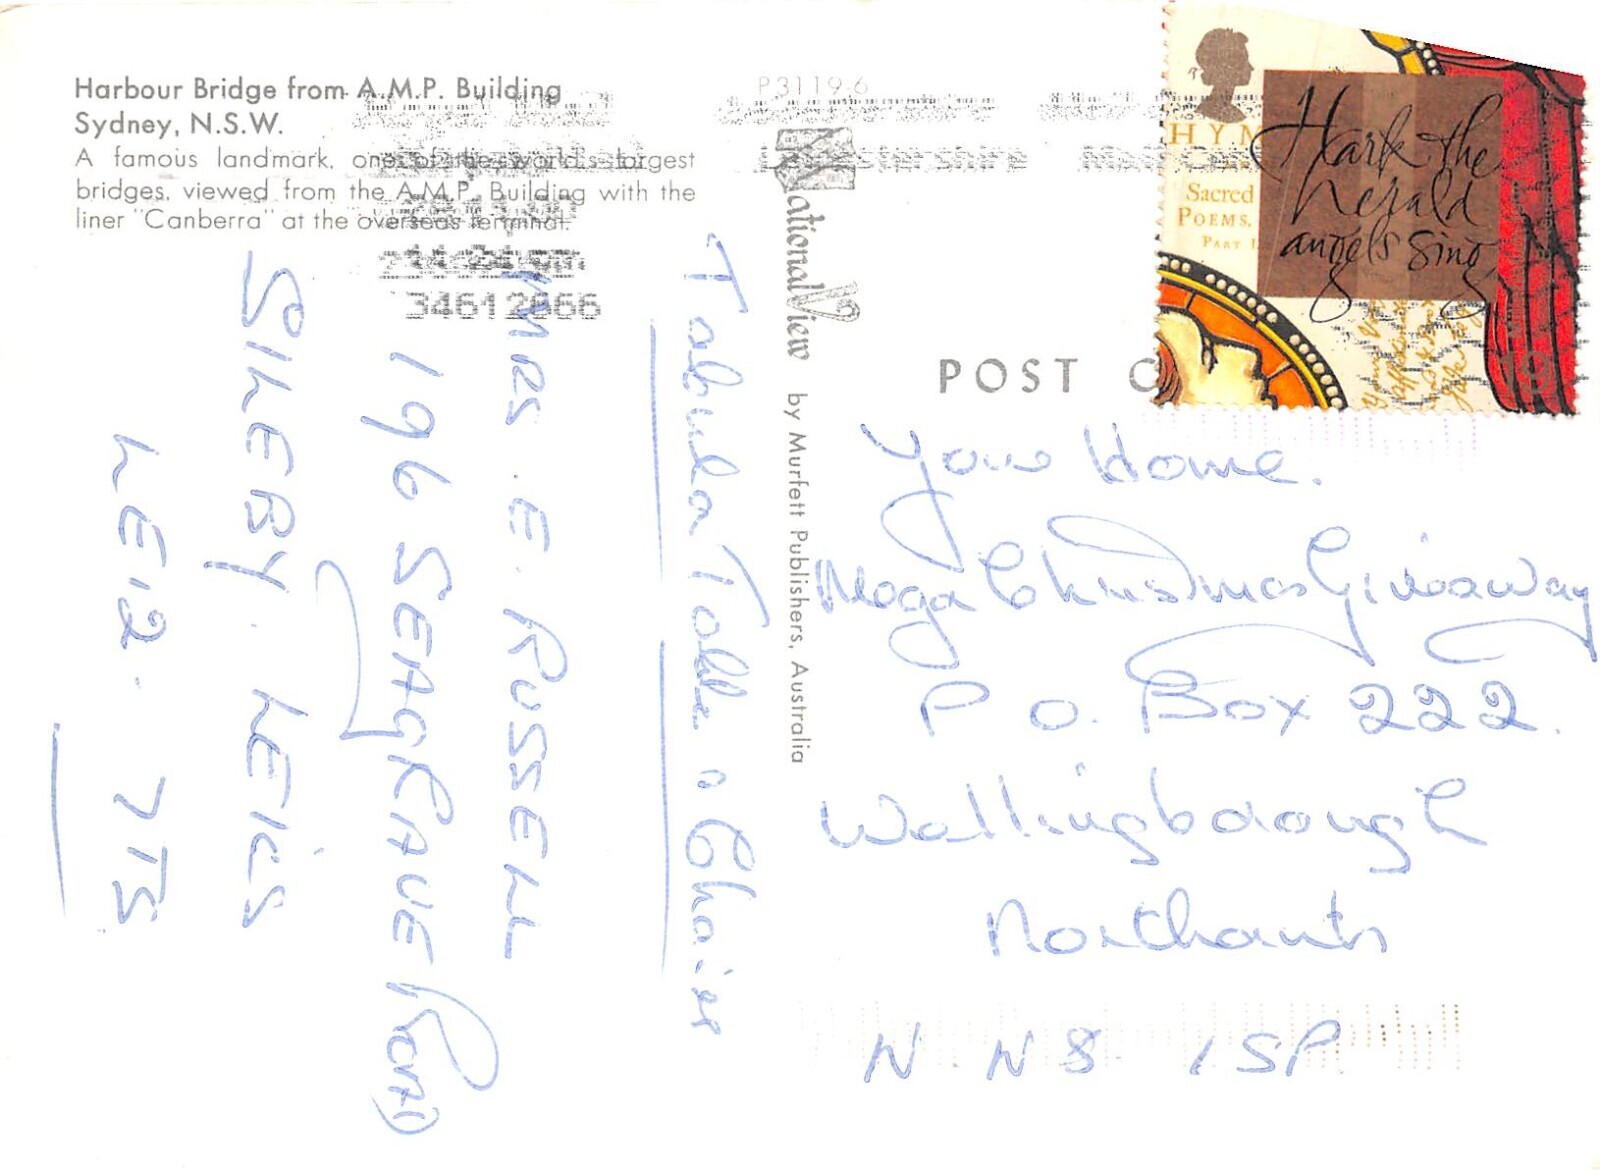 Harbour Bridge from A.M.P. Building
Sydney, N.S.W.
A famous landmark, one of the world's largest
bridges, viewed from the A.M.P. Building with the
liner "Canberra" at the overseas terminal.
34612866
Tabula Table & Chairs
MRS. E. RUSSELL
196 SEAGRAVE ROAD
SILEBY. LEICS
LE12. 7TS
P3119-6
Leicestershire
National View by Murfett Publishers, Australia
POST C
HYM
Sacred
POEMS.
PART I
Hark the
herald
angels sing
19
Your Home.
Mega Christmas Giveaway
P O. Box 222.
Wallingborough
Northants
N NN8 1SP